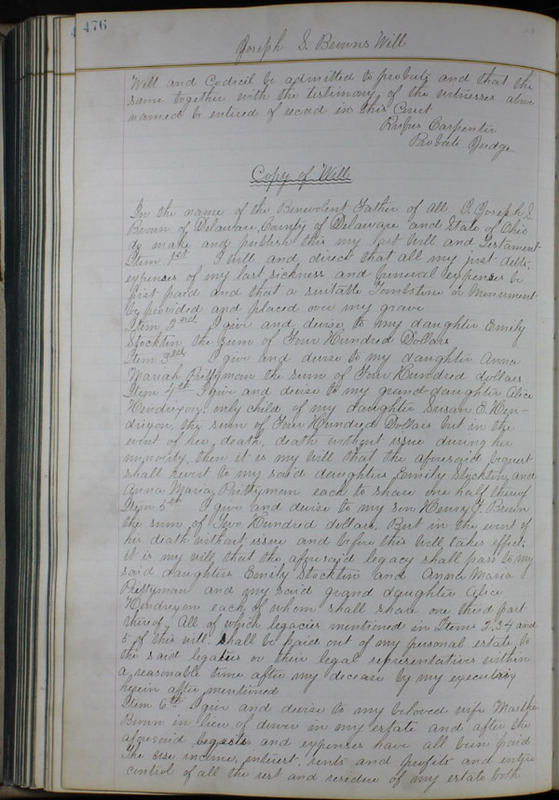 476
Joseph S. Browns Will
Will and Codicil be admitted to probate and that the
same together with the testimony of the witnesses above
named be entered of record in this Court
Rufus Carpenter
Probate Judge
Copy of Will
In the name of the Benevolent Father of all I, Joseph S.
Brown of Delaware, County of Delaware and State of Ohio
do make and publish this my last Will and Testament
Item 1st I will and direct that all my just debts,
expenses of my last sickness and funeral expenses be
first paid and that a suitable Tombstone or Monument
be provided and placed over my grave
Item 2nd I give and devise to my daughter Emily
Stockton the sum of Four Hundred Dollars
Item 3rd I give and devise to my daughter Anna
Mariah Prettyman the sum of Four Hundred dollars
Item 4th I give and devise to my grand-daughter Alice
Hendrixon, only child of my daughter Susan E. Hen-
drixon, the sum of Four Hundred Dollars but in the
event of her death, death without issue during her
minority, then it is my will that the aforesaid bequest
shall revert to my said daughters, Emily Stockton, and
Anna Maria Prettyman each to share one half thereof
Item 5th I give and devise to my son Henry Brown
the sum of Two Hundred dollars. But in the event of
her death without issue and before this Will takes effect,
it is my will that the aforesaid legacy shall pass to my
said daughters Emily Stockton and Anna Maria
Prettyman and my said grand daughter Alice
Hendrixon each of whom shall share one third part
thereof, All of which legacies mentioned in Items 2.3.4 and
5 of this will shall be paid out of my personal estate, to
the said legatees or their legal representatives within
a reasonable time after my decease by my executors
herein after mentioned
Item 6th I give and devise to my beloved wife Martha
Brown in lieu of dower in my estate and after the
aforesaid legacies and expenses have all been paid
The use income, interest, rents and profits and entire
control of all the rest and residue of my estate both